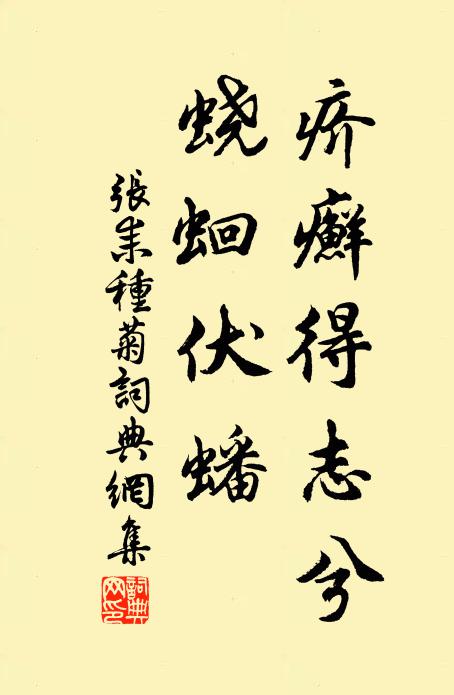 疥癬得志兮
蛲蛔伏蟠
張耒種菊詞典網集
詞典網印